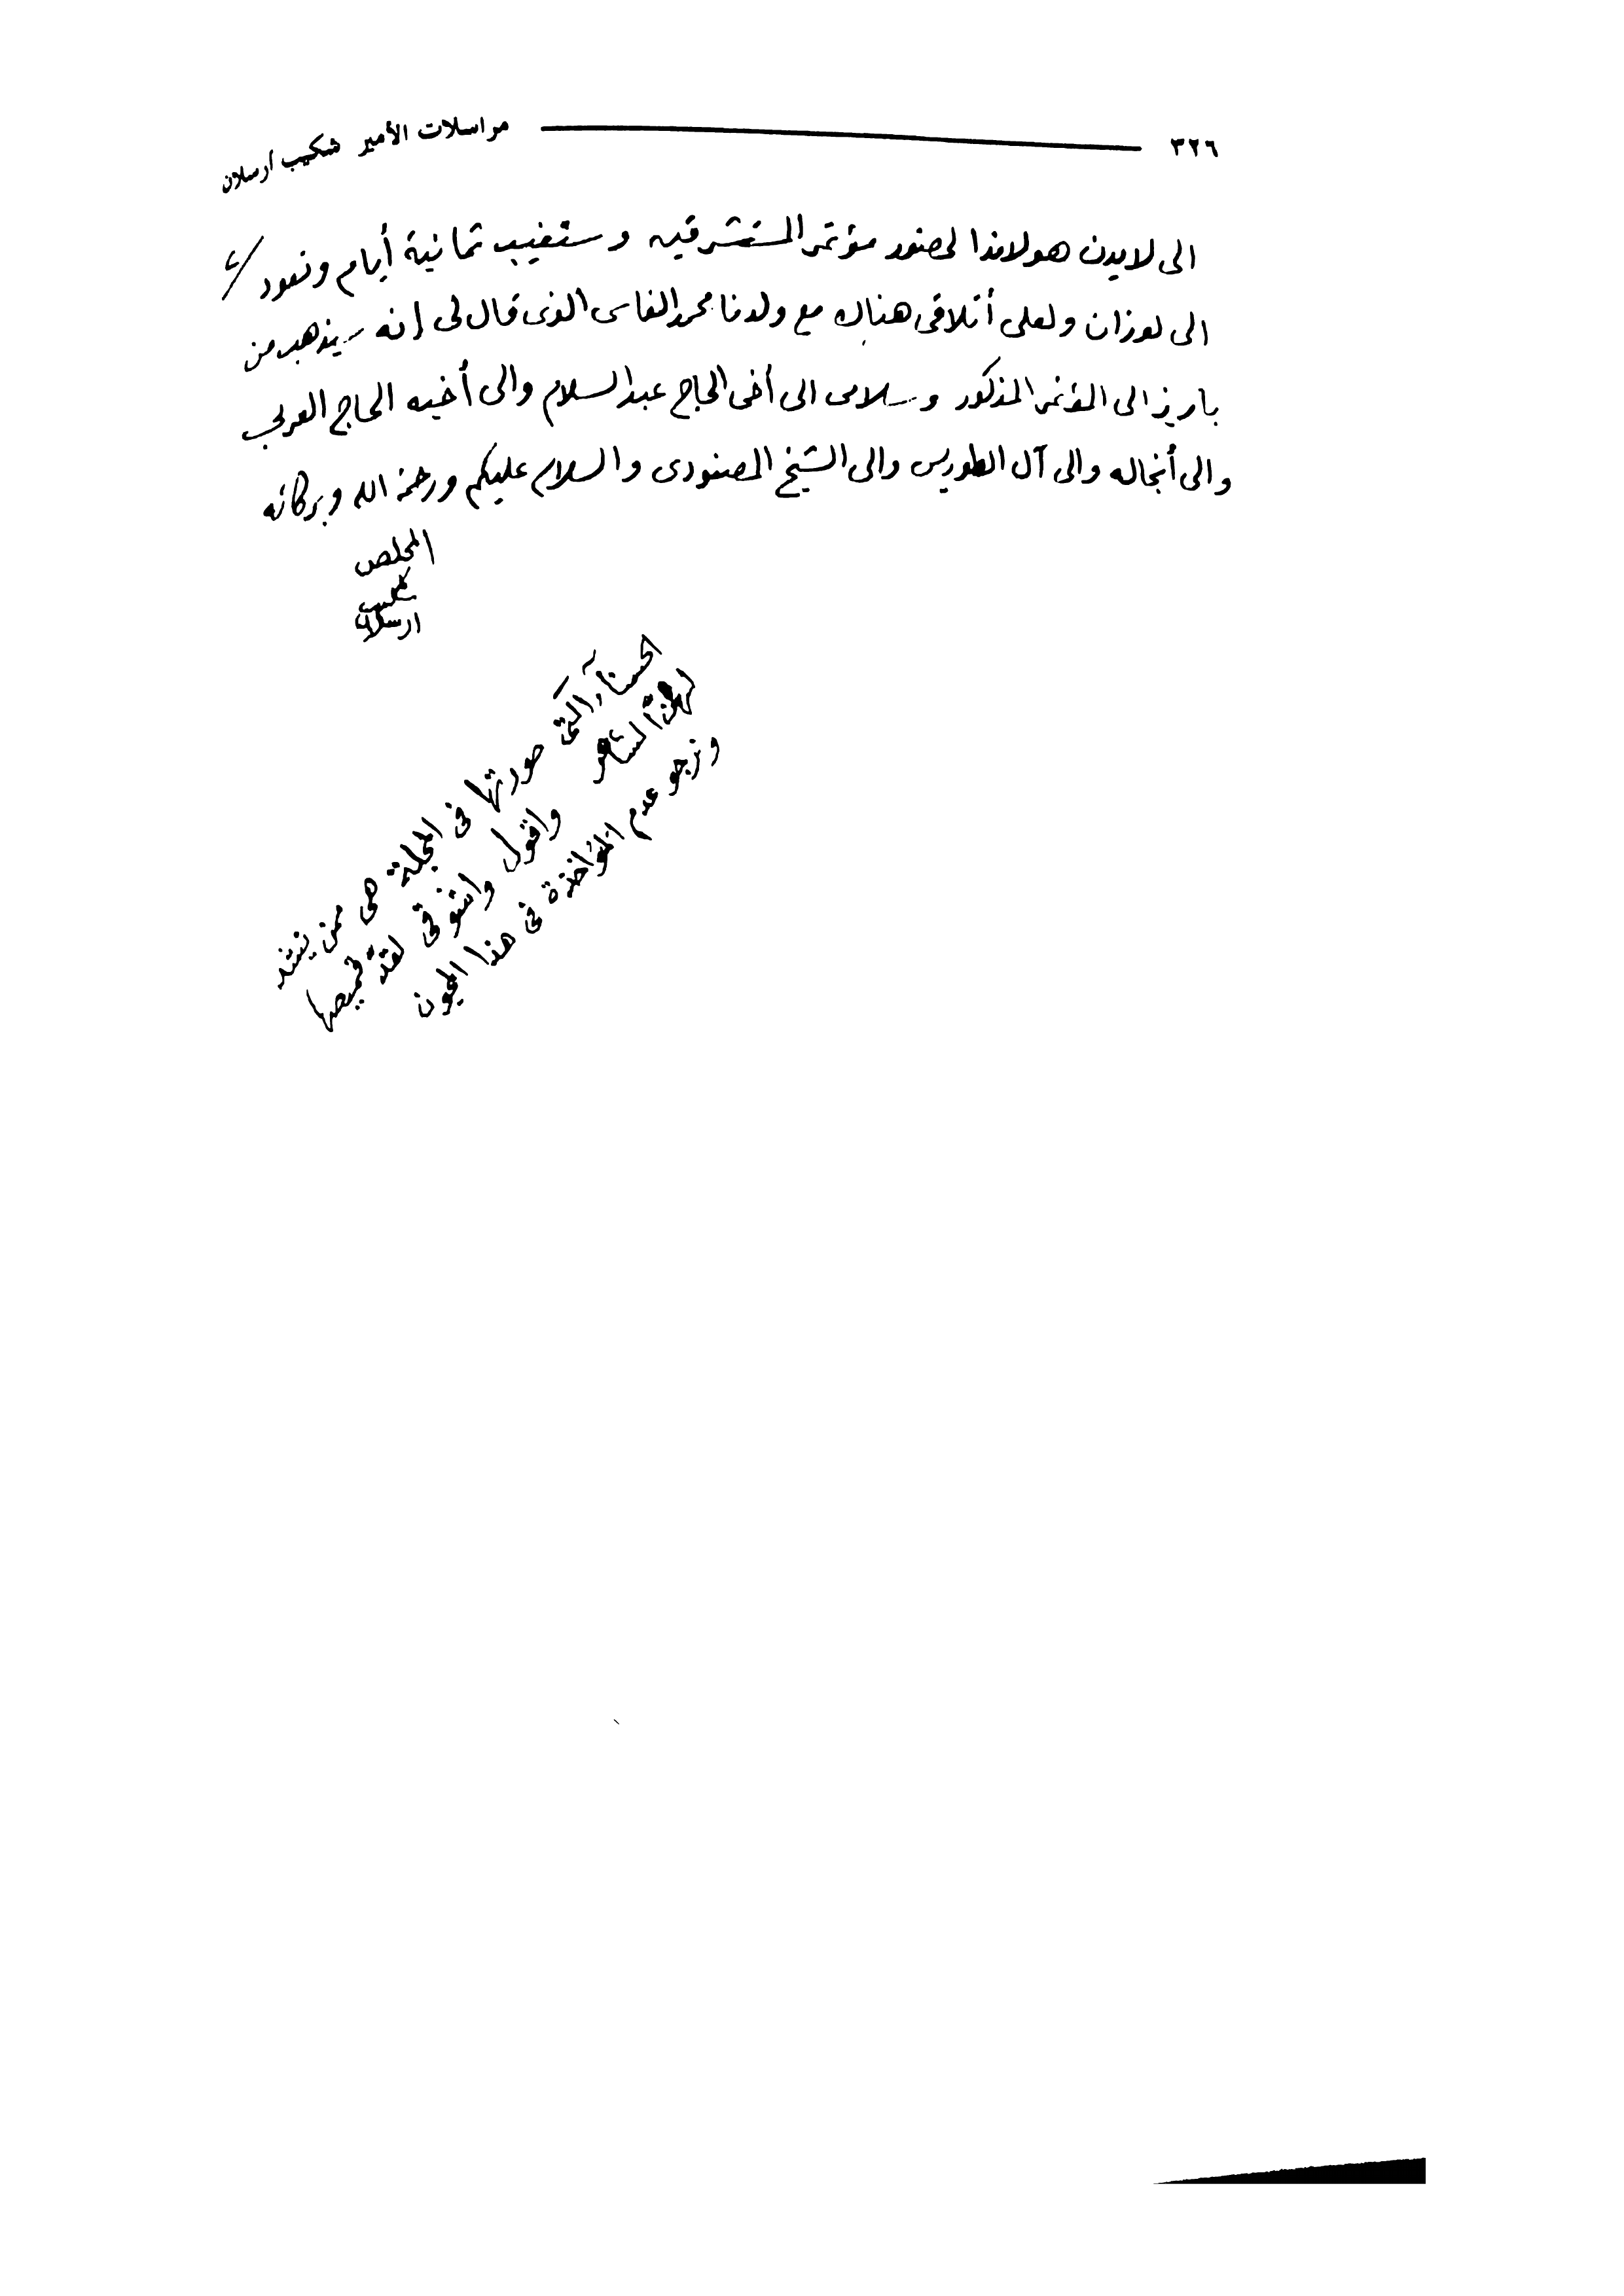 ٣٢٦
مراسلات الأمير شكيب أرسلان
الى لايدن هولاندا لحضور مؤتمر المستشرقين وستغيب ثمانية أيام ونعود
الى لوزان ولعلى أتلاقى هناك مع ولدنا محمد الفاسى الذى قال لى إنه سيذهب من
باريز الى المؤتمر المذكور وسلامى الى أخى الحاج عبد السلام والى أخيه الحاج العربى
والى أنجاله والى آل الطوريس والى الشيخ المصنودى والسلام عليكم ورحمة الله وبركاته
المخلص
شكيب
ارسلان
الحسناء التى صورتها فى المجلة هى ممن ينشد
لهن الشاعر واقول واشوقى لقدّ قميصها
ونرجو عدم المؤاخذة فى هذا المجون